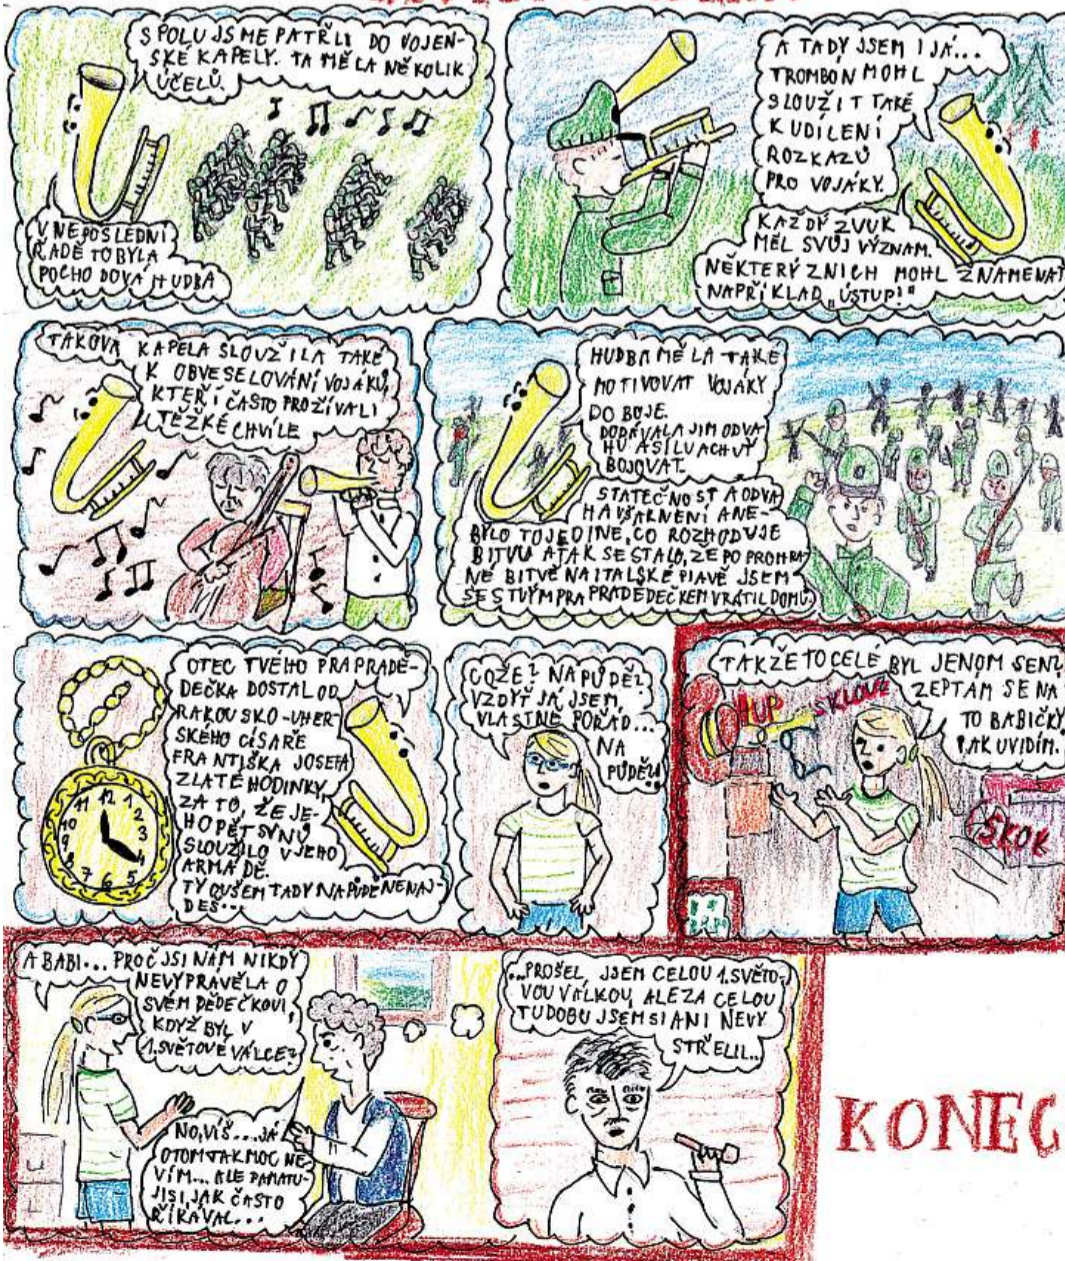 SPOLU JSME PATŘILI DO VOJEN-
SKÉ KAPELY. TA MĚLA NĚKOLIK
ÚČELŮ.
V NEPOSLEDNÍ
ŘADĚ TO BYLA
POCHODOVÁ HUDBA
A TADY JSEM I JÁ...
TROMBON MOHL
SLOUŽIT TAKÉ
K UDÍLENÍ
ROZKAZŮ
PRO VOJÁKY.
KAŽDÝ ZVUK
MĚL SVŮJ VÝZNAM.
NĚKTERÝ Z NICH MOHL ZNAMENAT
NAPŘÍKLAD „ÚSTUP!"
TAKOVÁ KAPELA SLOUŽILA TAKÉ
K OBVESELOVÁNÍ VOJÁKŮ,
KTEŘÍ ČASTO PROŽÍVALI
TĚŽKÉ CHVÍLE
HUDBA MĚLA TAKÉ
MOTIVOVAT VOJÁKY
DO BOJE.
DODÁVALA JIM ODVA
HU A SÍLU A CHUŤ
BOJOVAT.
STATEČNOST A ODVA
HA VŠAK NENÍ ANE-
BYLO TO JEDINÉ, CO ROZHODUJE
BITVU A TAK SE STALO, ŽE PO PROHRA
NÉ BITVĚ NA ITALSKÉ PIAVĚ JSEM
SE S TVÝM PRAPRADĚDEČKEM VRÁTIL DOMŮ.
11 12 1
10 2
9 3
8 4
7 6 5
OTEC TVÉHO PRAPRADĚ-
DEČKA DOSTAL OD
RAKOUSKO-UHER
SKÉHO CÍSAŘE
FRANTIŠKA JOSEFA
ZLATÉ HODINKY,
ZA TO, ŽE JE-
HO PĚT SYNŮ
SLOUŽILO V JEHO
ARMÁDĚ.
TY OVŠEM TADY NA PŮDĚ NENAJ-
DEŠ...
COŽE? NA PŮDĚ?
VZDYŤ JÁ JSEM
VLASTNĚ POŘÁD...
NA
PŮDĚ!
TAKŽE TO CELÉ BYL JENOM SEN?
ZEPTÁM SE NA
TO BABIČKY
PAK UVIDÍM.
HUP
SKLOUZ
SKOK
A BABI... PROČ JSI NÁM NIKDY
NEVYPRÁVĚLA O
SVÉM DĚDEČKOVI,
KDYŽ BYL V
1. SVĚTOVÉ VÁLCE?
NO, VÍŠ... JÁ
O TOM TAK MOC NE
VÍM... ALE PAMATU-
JI SI, JAK ČASTO
ŘÍKÁVAL...
...PROŠEL JSEM CELOU 1. SVĚTO-
VOU VÁLKOU, ALE ZA CELOU
TU DOBU JSEM SI ANI NEVY
STŘELIL..
KONEC